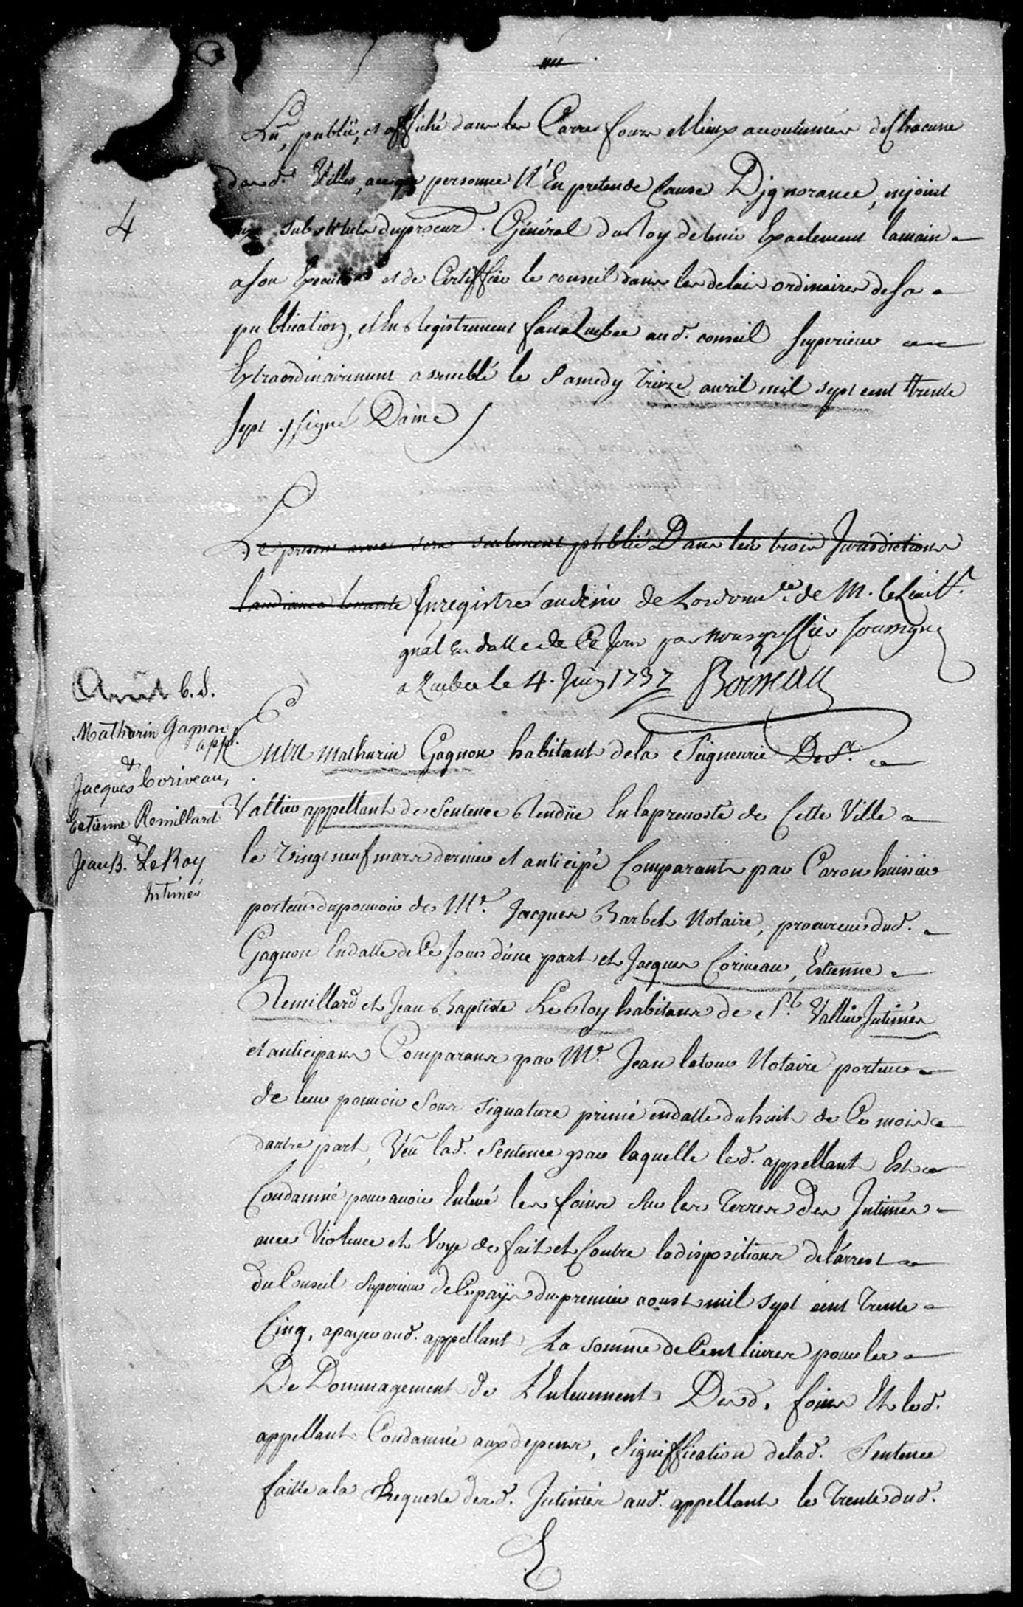 Lû, publié, et affiché dans les Carrefours et lieux accoutumés de Chacune
desd. Villes, personne N'En pretende Cause D'ignorance, enjoint
aux substituts du procur. Général du Roy de tenir Exactement la main
a son Execution et de Certiffier le conseil dans les delais ordinaires de sa
publication, et Enregistrement fait a Quebec aud. conseil Superieur
Extraordinairement assemblé le Samedy Treize avril mil sept cent trente
sept. signé Daine
Le present arrest sera seulement publié Dans les trois Jurisdictions
L'audiance tenante Enregistré au desir de L'ordonnce. de M. le Lieutt.
gnāl En datte de Ce Jour par nous greffier soussigné
a Quebec le 4. Juin 1737 Boisseau
4
Arrêt C. S.
Mathurin Gagnon
appt.
&
Jacques Coriveau,
Estienne Remillard
&
Jean B. LeRoy
Intimés
Entre Mathurin Gagnon habitant de la Seigneurie De St.
Vallier appellant de Sentence Rendüe En la prevosté de Cette Ville
le Vingt neuf mars dernier et anticipé Comparant par Caron huissier
porteur du pouvoir de Me. Jacques Barbel Notaire, procureur dud.
Gagnon En datte de Ce Jour d'une part et Jacques Coriveau, Estienne
Remillard et Jean Baptiste LeRoy habitans de St. Vallier Intimés
et anticipans Comparans par Me. Jean Latour Notaire porteur
de leur pouvoir Sous signature privée en datte du huit de Ce mois
dautre part, Veu lad. Sentence par laquelle led. appellant Est
Condamné pour avoir Enlevé les foins Sur les Terres Des Intimés
avec Violence et Voye de fait et Contre la disposition de l'arrest
du Conseil Superieur de Ce païs du premier aoust mil sept cent Trente
Cinq, a payer aud. appellant La somme de Cent livres pour les
De Dommagement de L'Enlevement Desd. foins Et led.
appellant Condamné aux depens, Signiffication de lad. Sentence
faitte a la Requeste desd. Intimés aud. appellant le Trente dud.